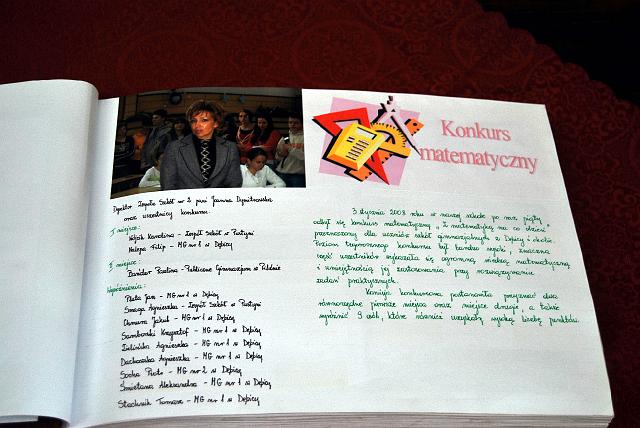 Dyrektor Zespołu Szkół nr 2 pani Joanna
oraz uczestnicy konkursu.
I miejsce:
Wójcik Karolina - Zespół Szkół w Pustyni
Filip - MG nr 1 w Dębicy
II miejsce:
Bandur Paulina - Publiczne Gimnazjum w Pilźnie
Wyróżnienia:
Plata Jan - MG nr 1 w Dębicy
Smaga Agnieszka - Zespół Szkół w Pustyni
Chmura Jakub - MG nr 1 w Dębicy
Samborski Krzysztof - MG nr 1 w Dębicy
Zielińska Agnieszka - MG nr 1 w Dębicy
Agnieszka - MG nr 1 w Dębicy
Socha Piotr - MG nr 2 w Dębicy
Śmietana Aleksandra - MG nr 1 w Dębicy
Stachnik Tomasz - MG nr 1 w Dębicy
Konkurs
matematyczny
3 stycznia 2008 roku w naszej szkole po raz piąty
odbył się konkurs matematyczny „Z matematyką na co dzień”
przeznaczony dla uczniów szkół gimnazjalnych z Dębicy i okolic.
Poziom tegorocznego konkursu był bardzo wysoki, znaczna
część uczestników wykazała się ogromną wiedzą matematyczną
i umiejętnością jej zastosowania przy rozwiązywaniu
zadań praktycznych.
Komisja konkursowa postanowiła przyznać dwa
równorzędne pierwsze miejsca oraz miejsce drugie, a także
wyróżnić 9 osób, które również uzyskały wysoką liczbę punktów.